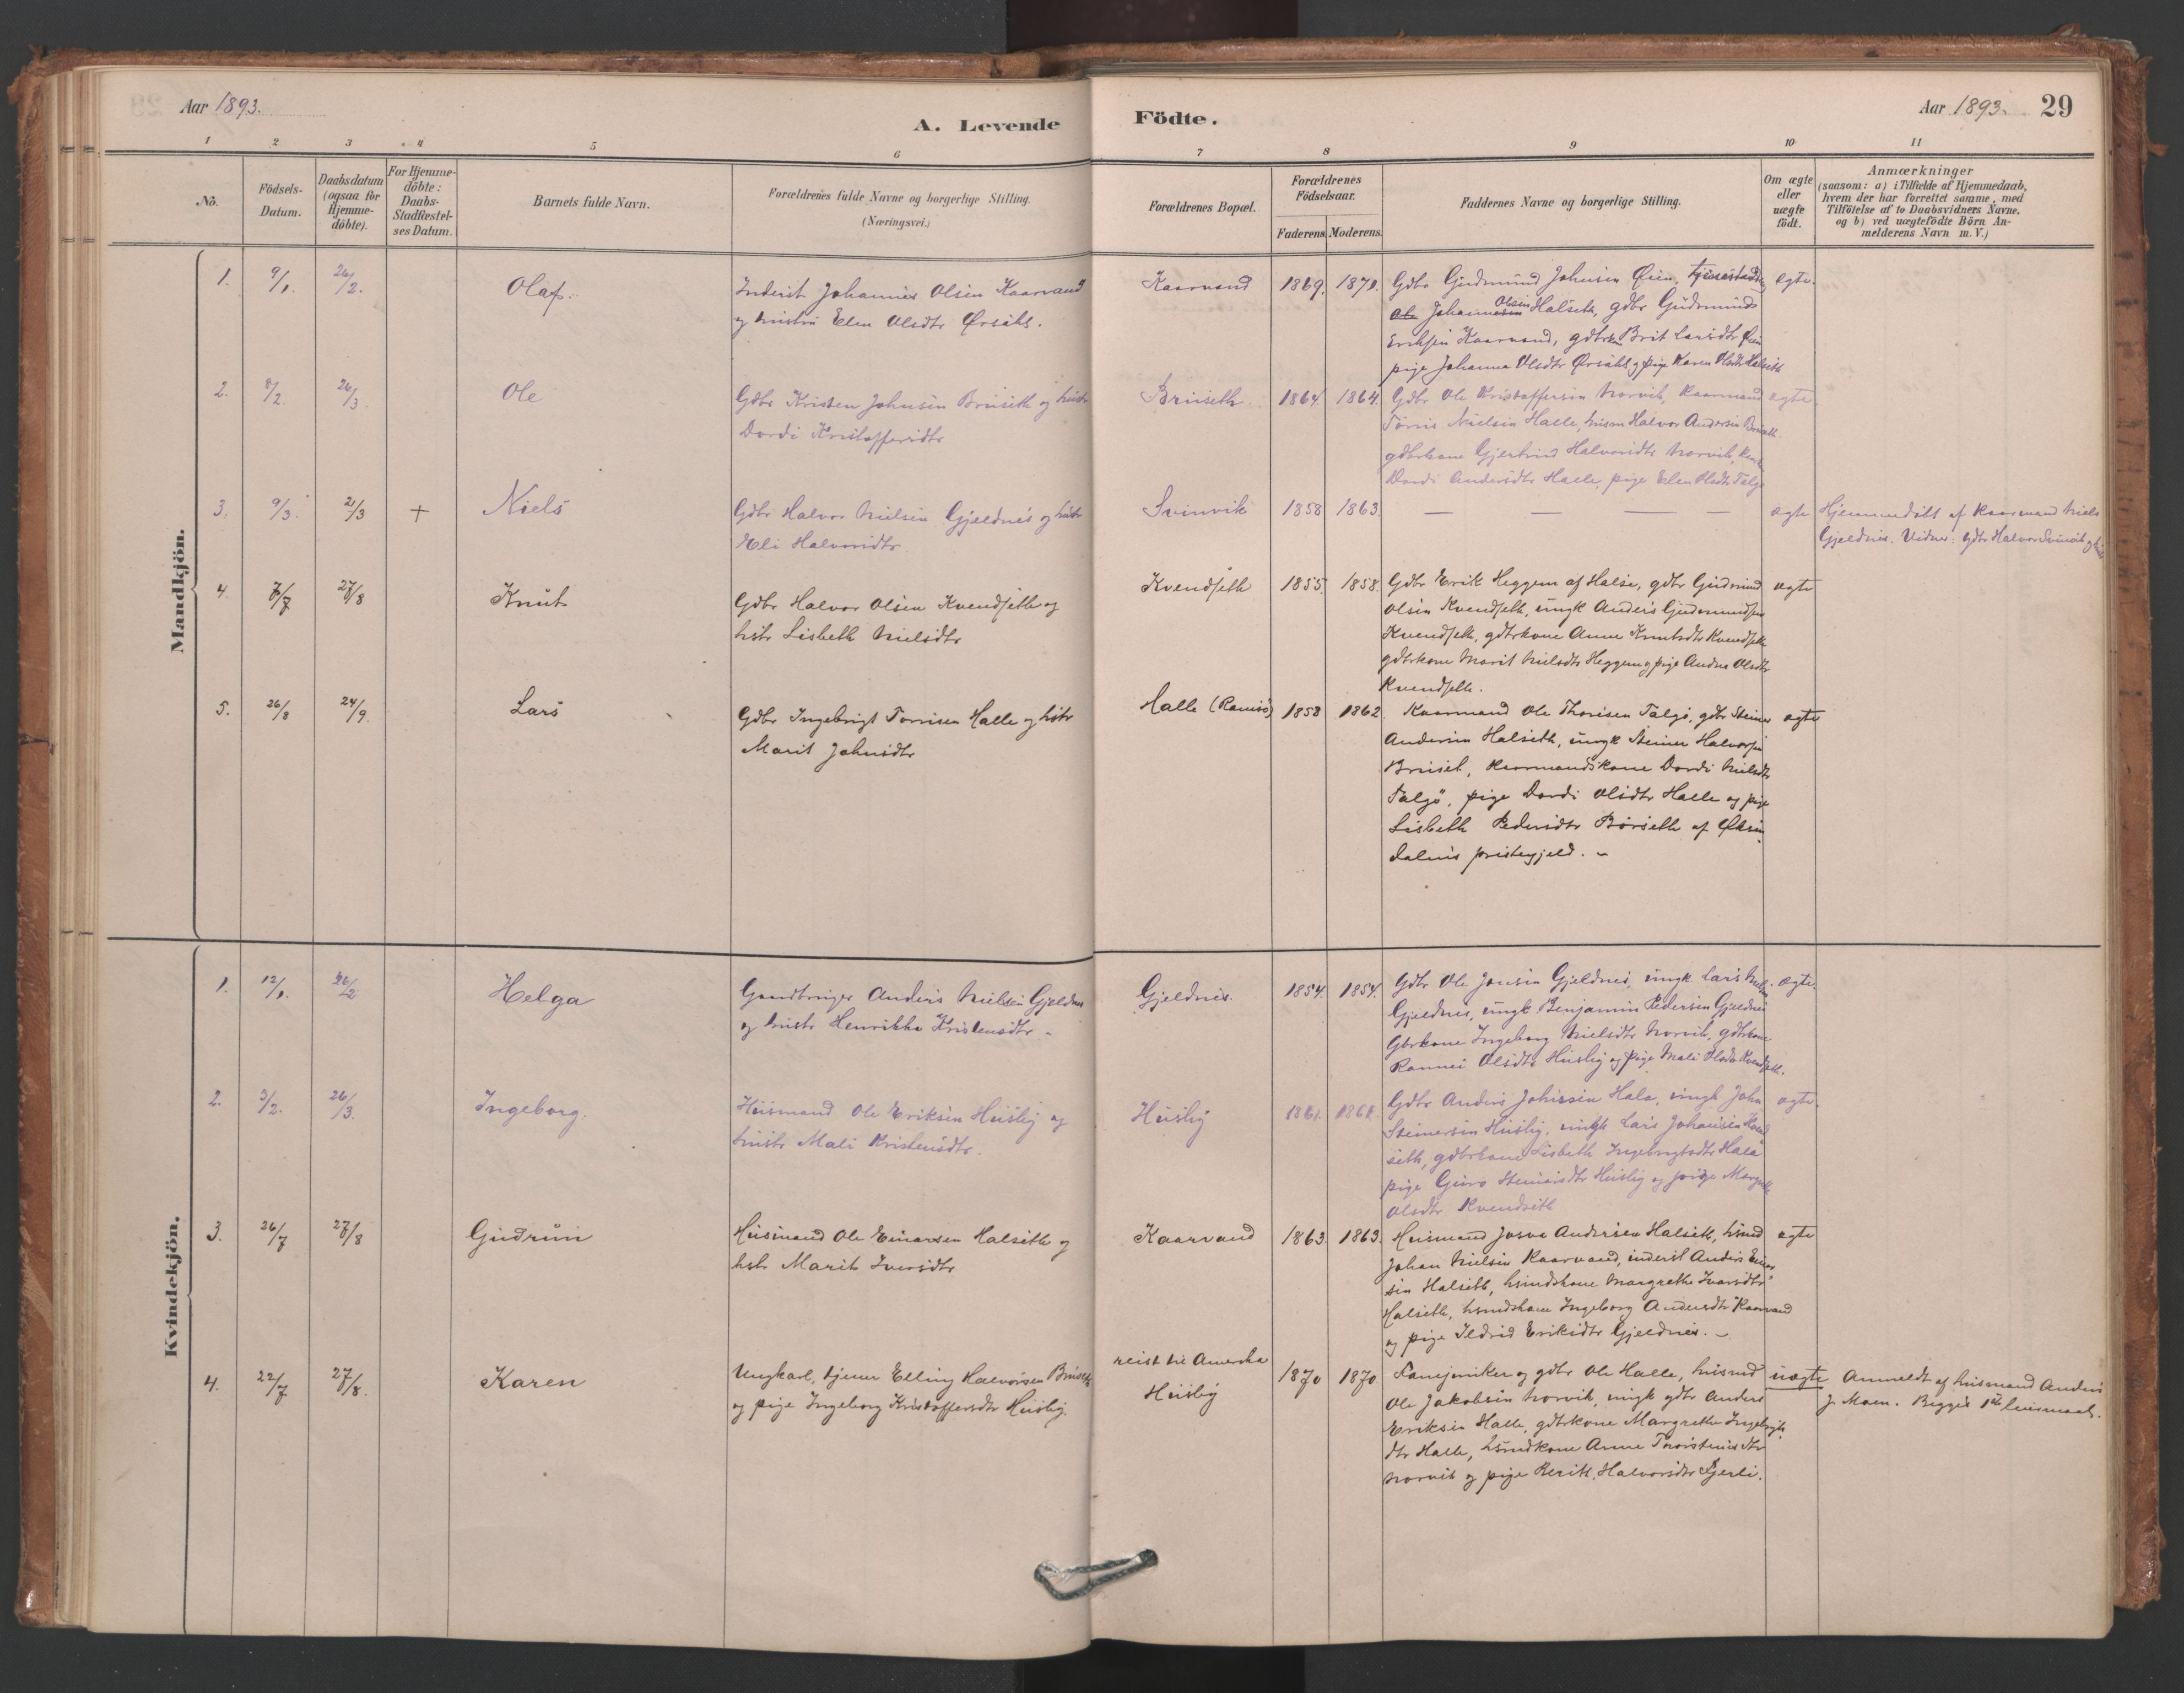 Aar 1893.
A. Levende Födte.
Aar 1893. 29
1 2 3 4 5 6 7 8 9 10 11
No. Födsels-Datum. Daabsdatum (ogsaa for Hjemme-döbte). For Hjemme-döbte: Daabs-Stadfæstel-ses Datum. Barnets fulde Navn. Forældrenes fulde Navne og borgerlige Stilling. (Næringsvei.) Forældrenes Bopæl. Forældrenes Födselsaar. Faderens. Moderens. Faddernes Navne og borgerlige Stilling. Om ægte eller uægte født. Anmærkninger
(saasom: a) i Tilfælde af Hjemmedaab,
hvem der har forrettet samme, med
Tilföielse af to Daabsvidners Navne,
og b) ved uægtefödte Börn An-
melderens Navn m. V.)
Mandkjön.
1. 9/1. 26/2. Olaf.
Inderst Johannes Olsen Kaarvand
og hustru Elen Olsdtr Ørsahl.
Kaarvand 1869. 1870.
Gdbr Gudmund Johnsen Øien,
Johannes Olsen Halseth, gdbr Gudmund
Eriksen Kaarvand, gdbrkon Brit Larsdtr Øien
pige Johanna Olsdtr Ørsahl og pige Karen Olsdtr Halseth
ægte.
2. 8/2. 26/3. Ole
Gdbr Kristen Johnsen Bruseth og hustr
Dordi Kristoffersdtr
Bruseth. 1864. 1864.
Gdbr Ole Kristoffersen Norvik, Kaarmand
Torris Nielsen Halle, husm Halvor Andersen Bruseth
gdbrkone Gjertrud Halvorsdtr Norvik,
Dordi Andersdtr Halle, pige Elen Olsdtr Talgø
ægte.
3. 9/3. 21/3 + Niels
Gdbr Halvor Nielsen Gjeldnes og hustr
Eli Halvorsdtr
Svinvik 1858 1863. — — — —
ægte
Hjemmedøbt af Kaarmand Niels
Gjeldnes. Vidner: gdbr Halvor Svinvik og
4. 7/7 27/8 Knut
Gdbr Halvor Olsen Kvendseth og
hstr Lisbeth Nielsdtr
Kvendseth 1855. 1858.
Gdbr Erik Heggem af Halse, gdbr Gudmund
Olsen Kvendseth, ungk Anders Gudmundsen
Kvendseth, gdbrkone Anne Knutsdtr Kvendseth
gdbrkone Marit Nielsdtr Heggem og pige Andrea Olsdtr
Kvendseth.
ægte
5. 26/8 24/9. Lars
Gdbr Ingebrigt Torrisen Halle og hstr
Marit Johnsdtr
Halle (Ramsø) 1858 1862.
Kaarmand Ole Thorisen Talgø, gdbr Steiner
Andersen Halseth, ungk Steiner Halvorsen
Bruset, kaarmandskone Dordi Nielsdtr
Talgö, pige Dordi Olsdtr Halle og pige
Lisbeth Pedersdtr Børseth af Øksen-
dalens prestegjeld. –
ægte
Kvindekjön.
1. 12/1. 26/2 Helga
Gaardbruger Anders Nielsen Gjeldnes
og hustr Henrikke Kristensdtr –
Gjeldnes. 1854. 1854.
Gdbr Ole Jonsen Gjeldnes, ungk Lars Nielsen
Gjeldnes, ungk Benjamin Pedersen Gjeldnes
Gbrkone Ingeborg Nielsdtr Norvik, gdbrkone
Rannei Olsdtr Husby og pige Mali Olsdtr Kvendseth.
ægte.
2. 5/2. 26/3. Ingeborg.
Husmand Ole Eriksen Husby og
hustr Mali Kristensdtr.
Husby 1861. 1861.
Gdbr Anders Johnsen Hala, ungk John
Steinersen Husby, ungk Lars Johansen Hal-
seth, gdbrkone Lisbeth Ingebrigtsdtr Hala
pige Guro Steinersdtr Husby og pige Margrethe
Olsdtr Kvendseth
ægte.
3. 26/7 27/8 Gudrun
Husmand Ole Einarsen Halseth og
hstr Marit Iversdtr
Kaarvand 1863. 1863.
Husmand Josva Andersen Halseth, husmd
Johan Nielsen Kaarvand, inderst Anders Einar-
sen Halseth, husmdskone Margrethe Ivarsdtr
Halseth, husmdskone Ingeborg Andersdtr Kaarvand
og pige Ildrid Eriksdtr Gjeldnes. –
ægte
4. 22/7 27/8. Karen
Ungkarl, tjener Elling Halvorsen Bruseth
og pige Ingeborg Kristoffersdtr Husby.
reist til Amerika
Husby 1870 1870
Fanejunker og gdbr Ole Halle, husmd
Ole Jakobsen Norvik, ungk gdbr Anders
Eriksen Halle, gdbrkone Margrethe Ingebrigts-
dtr Halle, husmdkone Anne Thorstensdtr
Norvik og pige Berit Halvorsdtr Fjerli.
uægte
Anmeldt af husmand Anders
J. Moen. Begges 1ste leiermaal.